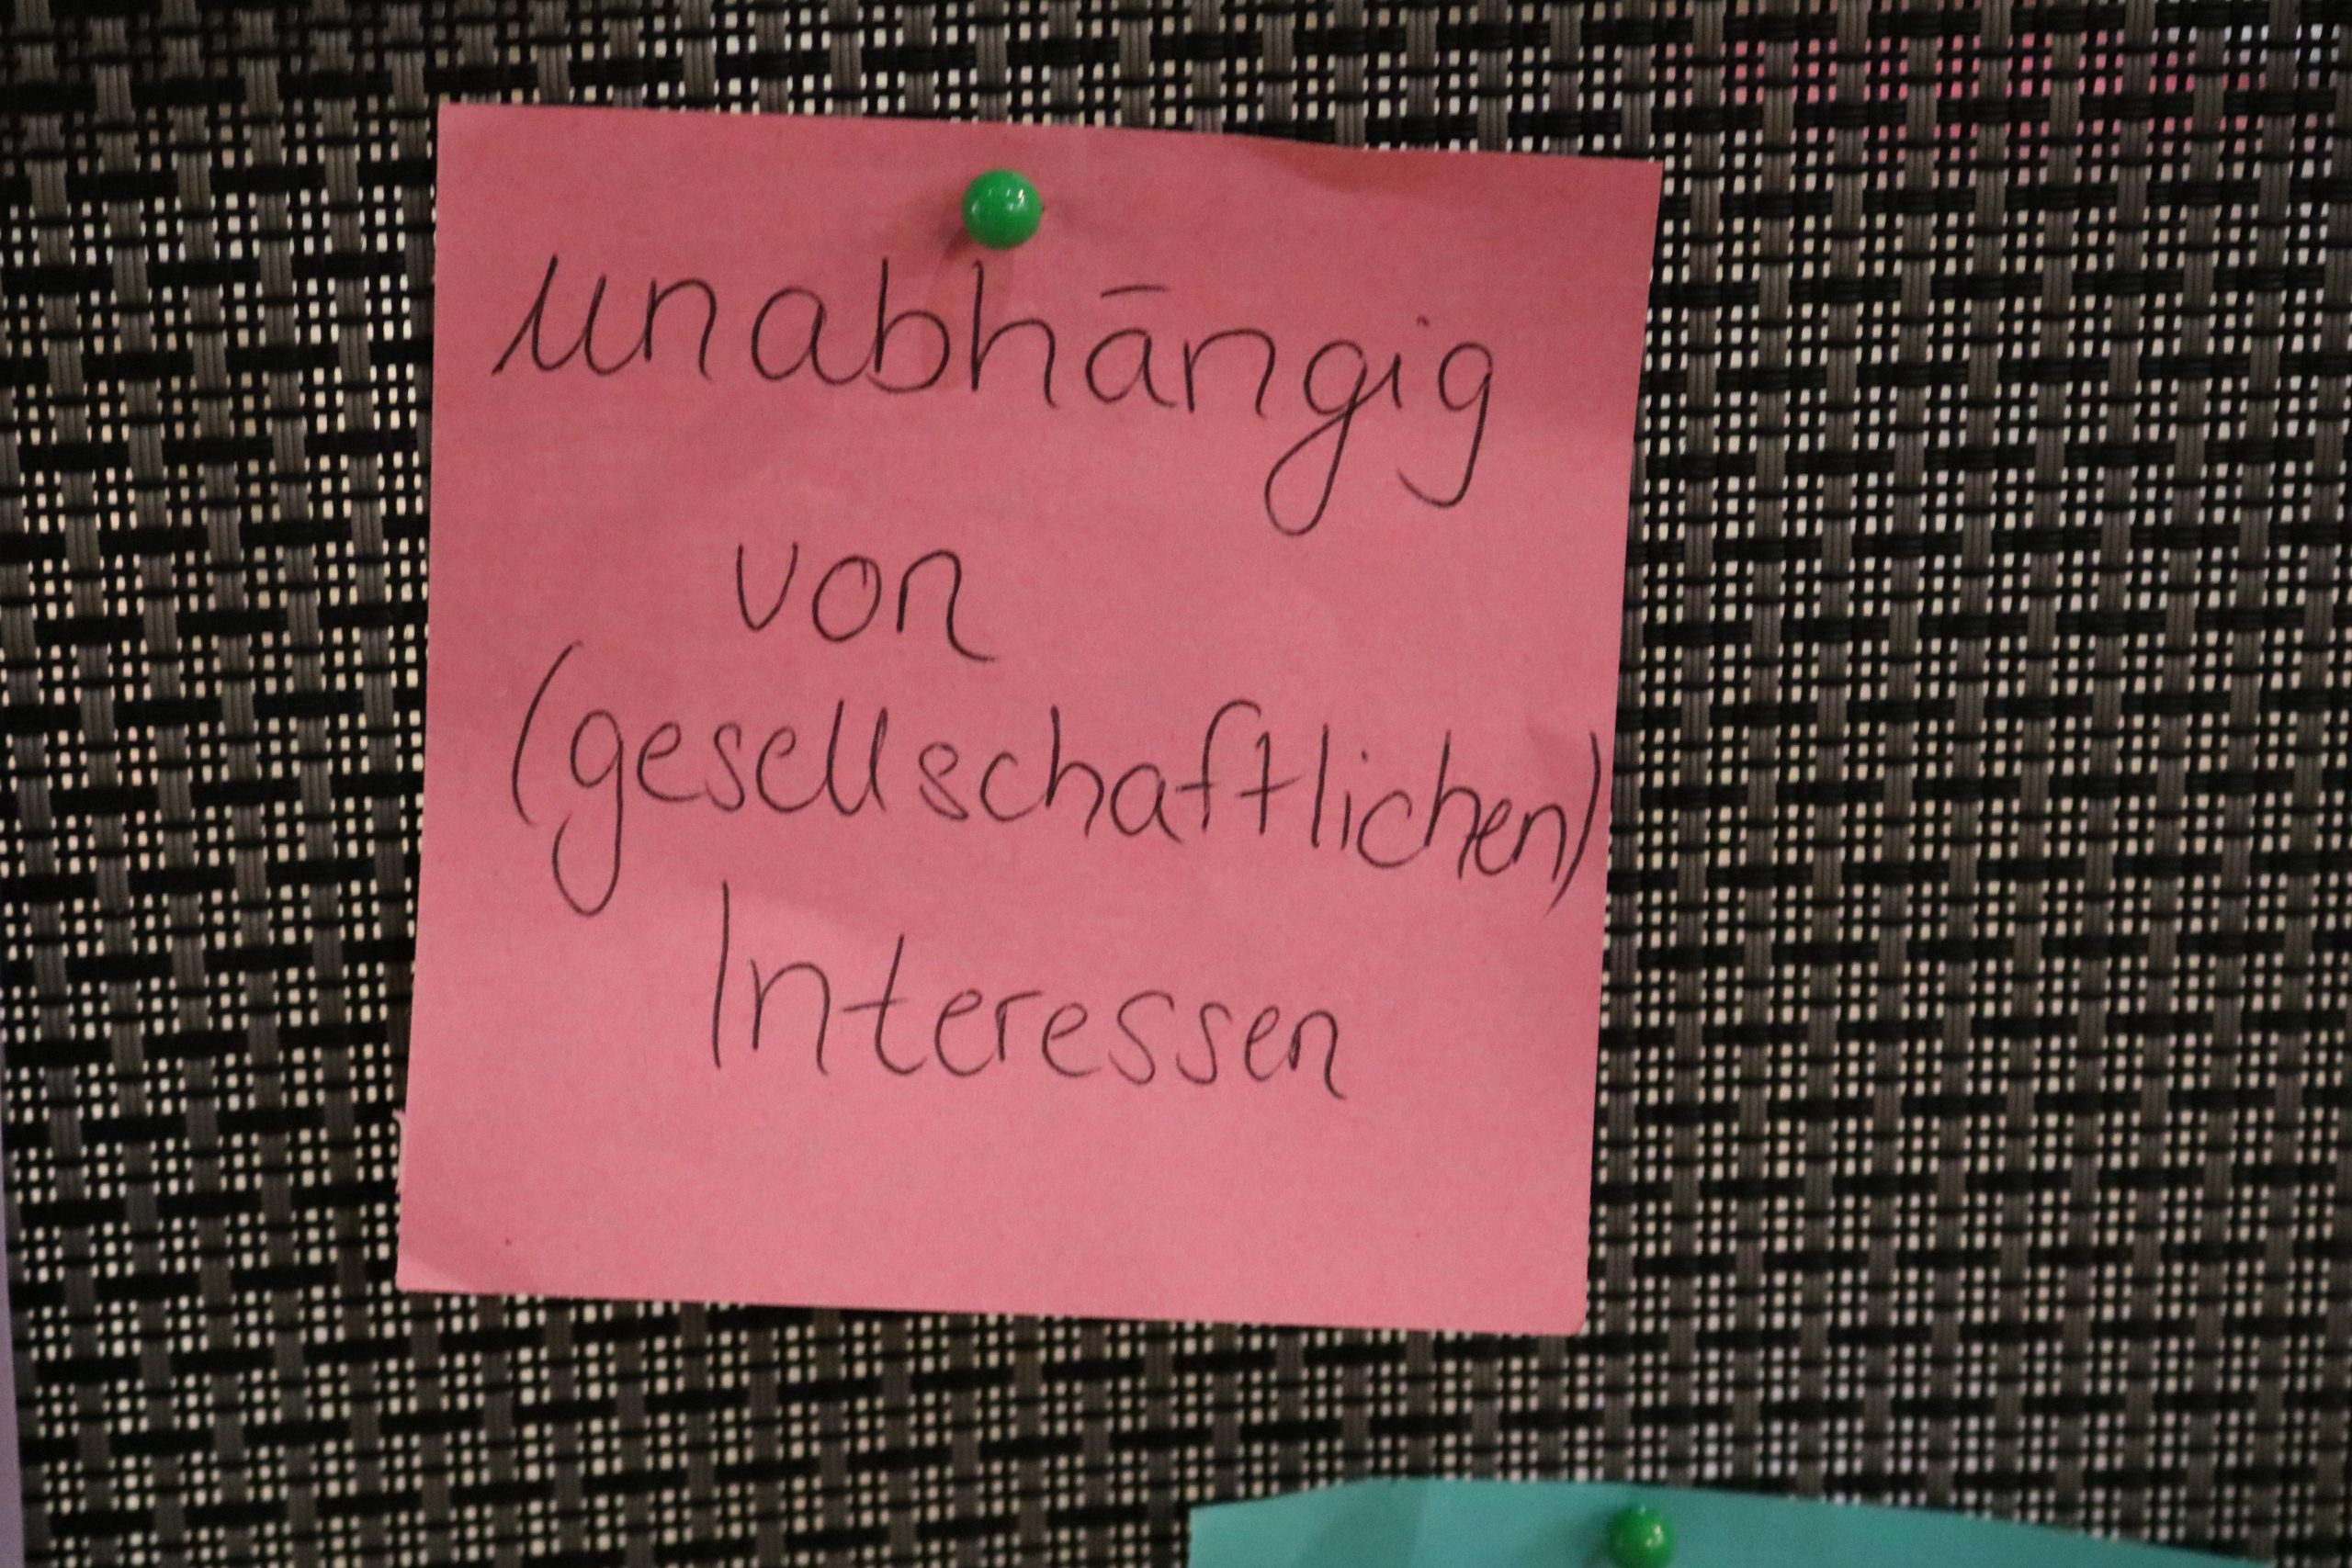 unabhängig
von
(gesellschaftlichen)
Interessen